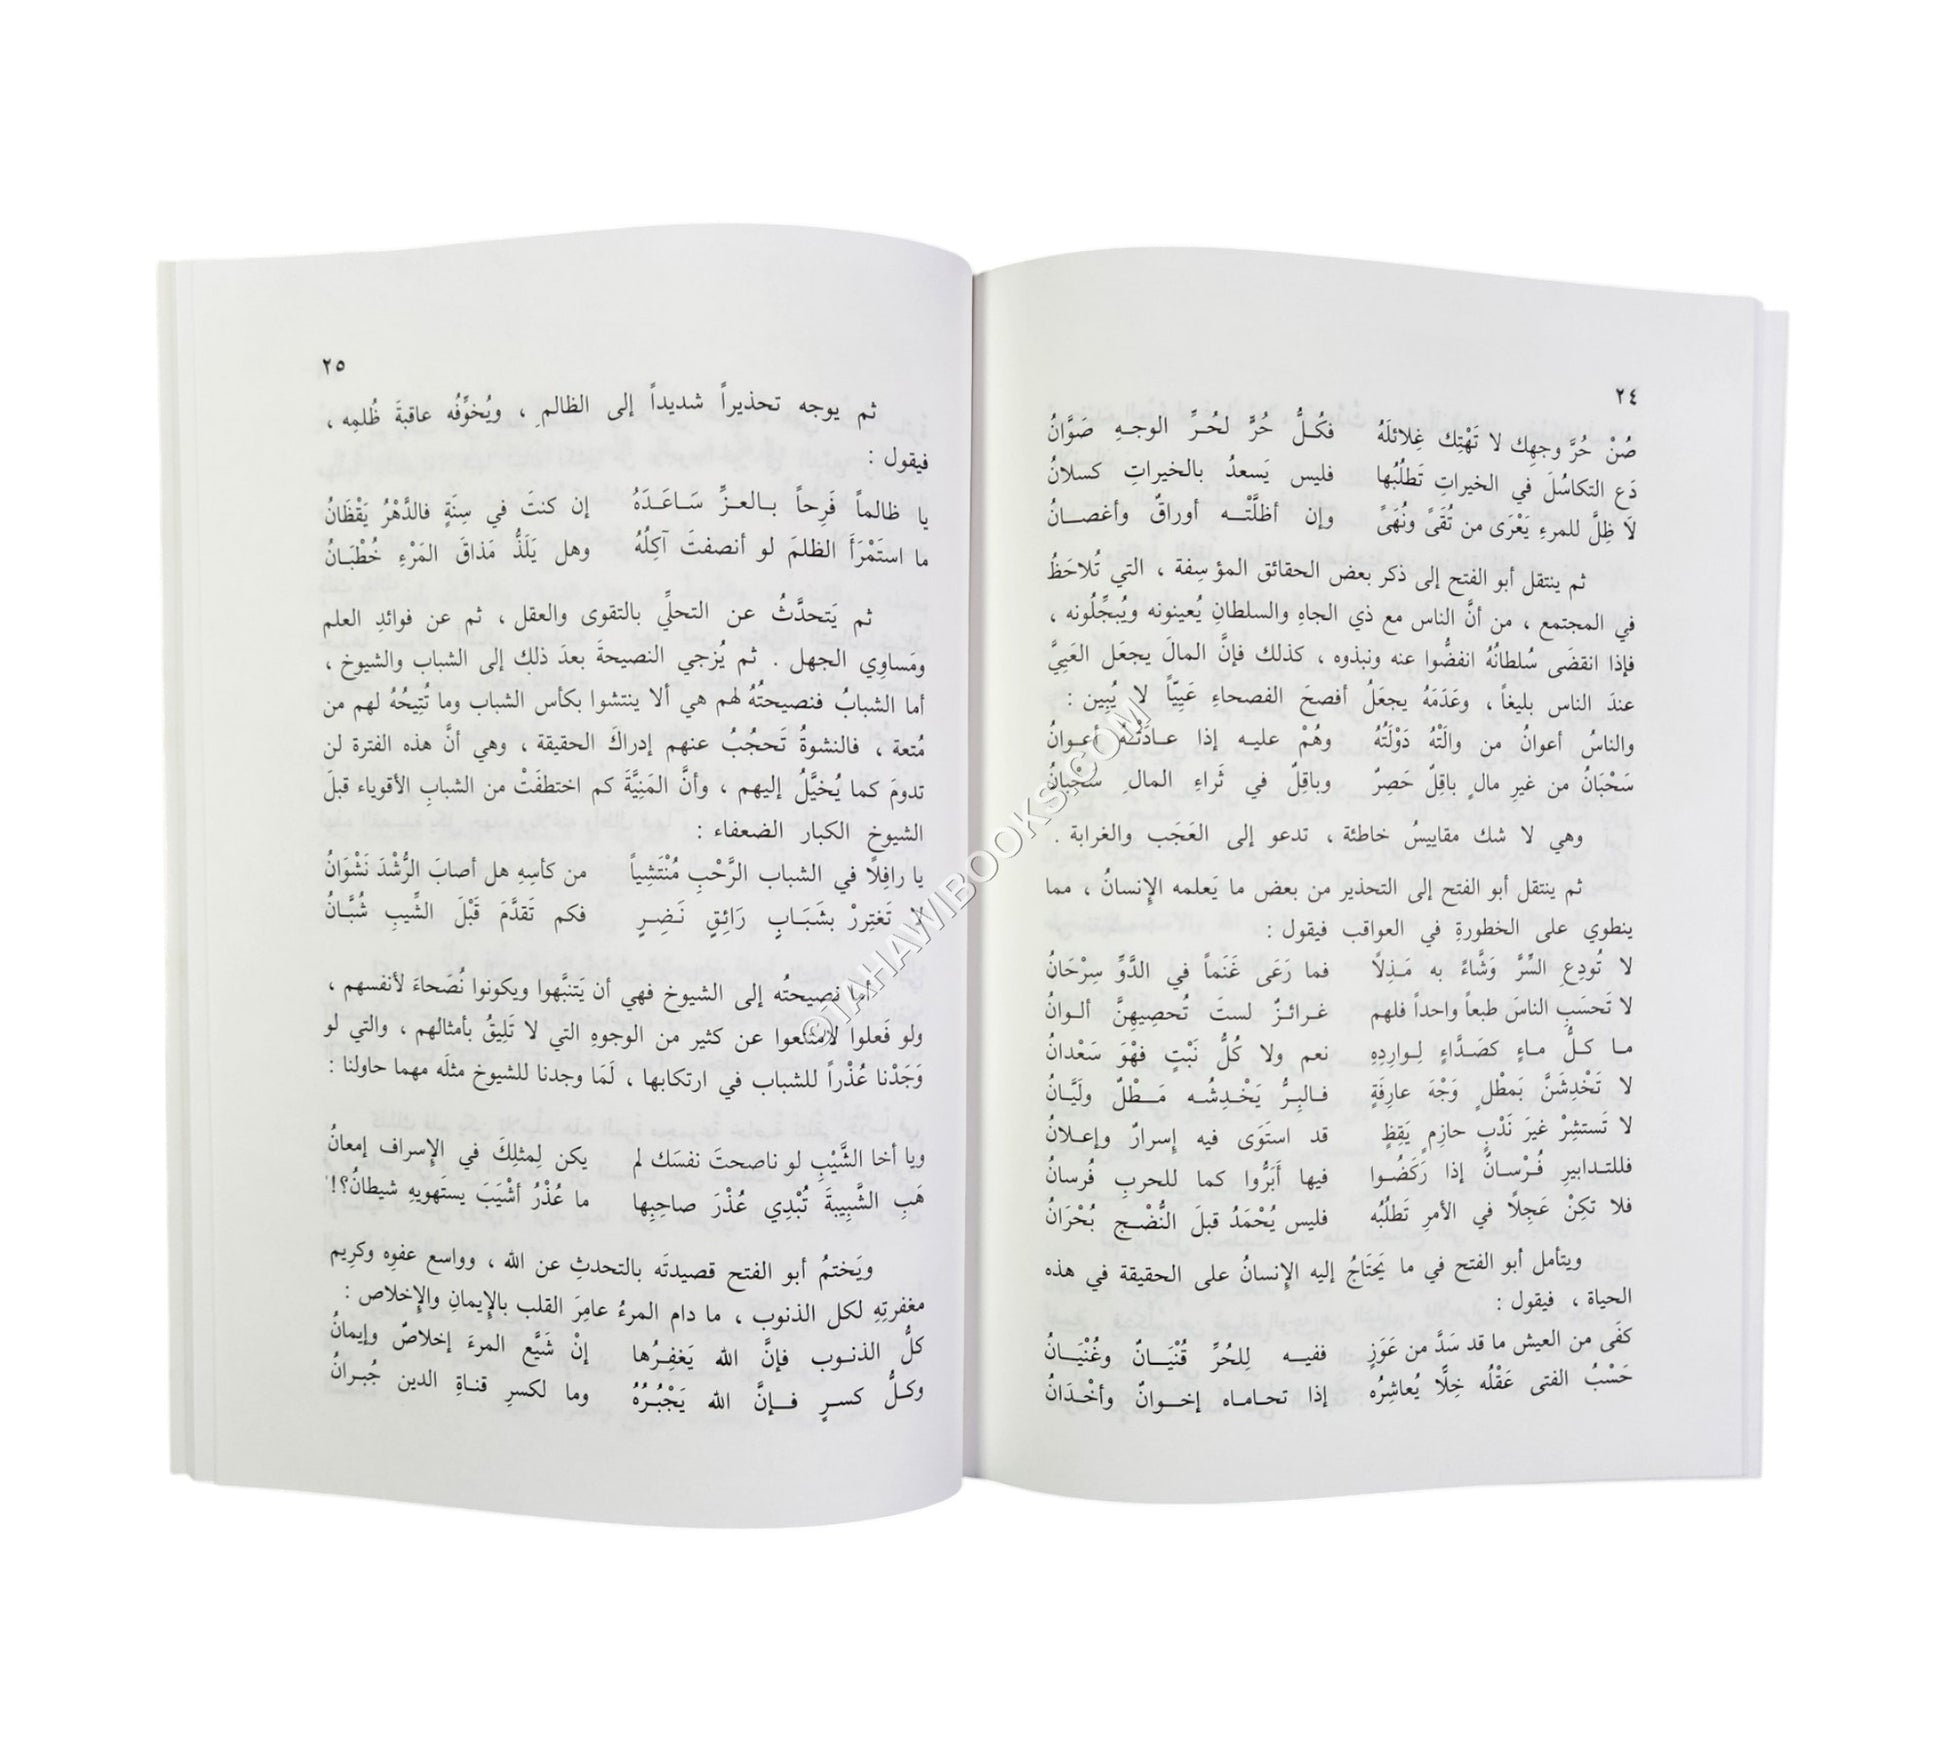 ٢٤
صُنْ حُرَّ وجهِك لا تَهْتِك غِلائلَهُ فكُلُّ حُرٍّ لحُرِّ الوجهِ صَوَّانُ
دَع التكاسُلَ في الخيراتِ تَطلُبُها فليس يَسعدُ بالخيراتِ كسلانُ
لاَ ظِلَّ للمرءِ يَعْرَى من تُقَىً ونُهَىً وإن أظلَّتْه أوراقٌ وأغصانُ
ثم ينتقل أبو الفتح إلى ذكر بعض الحقائق المؤسِفة ، التي تُلاحَظُ
في المجتمع ، من أنَّ الناس مع ذي الجاهِ والسلطانِ يُعينونه ويُبجِّلُونه ،
فإذا انقضَى سُلطانُهُ انفضُّوا عنه ونبذوه ، كذلك فإنَّ المالَ يجعَل العَيِيَّ
عندَ الناس بليغاً ، وعَدَمَهُ يجعَلُ أفصحَ الفصحاءِ عَيِيّاً لا يُبِين :
والناسُ أعوانُ من والَتْهُ دَوْلَتُهُ وهُمْ عليه إذا عادَتْهُ أعوانُ
سَحْبَانُ من غيرِ مالٍ باقِلٌ حَصِرٌ وباقِلٌ في ثَراءِ المالِ سَحْبانُ
وهي لا شك مقاييسُ خاطئة ، تدعو إلى العَجَب والغرابة .
ثم ينتقل أبو الفتح إلى التحذير من بعض ما يَعلمه الإِنسانُ ، مما
ينطوي على الخطورةِ في العواقب فيقول :
لا تُودِعِ السِّرَّ وَشَّاءً به مَذِلاً فما رَعَى غَنَماً في الدَّوِّ سِرْحَانُ
لا تَحسَبِ الناسَ طبعاً واحداً فلهم غرائزٌ لستَ تُحصِيهِنَّ ألوانُ
ما كلُّ ماءٍ كصَدَّاءٍ لِوارِدِهِ نعم ولا كُلُّ نَبْتٍ فهْوَ سَعْدانُ
لا تَخْدِشَنَّ بَمطْلٍ وَجْهَ عارِفَةٍ فالبِرُّ يَخْدِشُه مَطْلٌ ولَيَّانُ
لا تَستشِرْ غيرَ نَدْبٍ حازِمٍ يَقِظٍ قد استَوَى فيه إِسرارٌ وإعلانُ
فللتدابيرِ فُرْسانٌ إذا رَكَضُوا فيها أَبَرُّوا كما للحربِ فُرسانُ
فلا تكِنْ عَجِلاً في الأمرِ تَطلُبُه فليس يُحْمَدُ قبلَ النُّضْجِ بُحْرَانُ
ويتأمل أبو الفتح في ما يَحتَاجُ إليه الإِنسانُ على الحقيقة في هذه
الحياة ، فيقول :
كفَى من العيش ما قد سَدَّ من عَوَزٍ ففيه لِلحُرِّ قُنْيَانٌ وغُنْيَانُ
حَسْبُ الفتى عَقْلُه خِلًّا يُعاشِرُه إذا تحاماه إخوانٌ وأخْدَانُ
٢٥
ثم يوجه تحذيراً شديداً إلى الظالمِ ، ويُخوِّفُه عاقبةَ ظُلمِه ،
فيقول :
يا ظالماً فَرِحاً بالعزِّ سَاعَدَهُ إن كنتَ في سِنَةٍ فالدَّهْرُ يَقْظَانُ
ما استَمْرَأَ الظلمَ لو أنصفتَ آكِلُهُ وهل يَلَذُّ مَذاقَ المَرْءِ خُطْبَانُ
ثم يَتحدَّثُ عن التحلِّي بالتقوى والعقل ، ثم عن فوائدِ العلم
ومَساوِي الجهل . ثم يُزجي النصيحةَ بعدَ ذلك إلى الشباب والشيوخ ،
أما الشبابُ فنصيحتُهُ لهم هي ألا ينتشوا بكأس الشباب وما تُتِيحُهُ لهم من
مُتعة ، فالنشوةُ تَحجُبُ عنهم إدراكَ الحقيقة ، وهي أنَّ هذه الفترة لن
تدومَ كما يُخيَّلُ إليهم ، وأنَّ المَنِيَّةَ كم اختطفَتْ من الشبابِ الأقوياء قبلَ
الشيوخ الكبار الضعفاء :
يا رافِلًا في الشباب الرَّحْبِ مُنْتَشِياً من كأسِهِ هل أصابَ الرُّشْدَ نَشْوَانُ
لا تَغتِررْ بشَبَابٍ رَائِقٍ نَضِرٍ فكم تَقدَّمَ قَبْلَ الشِّيبِ شُبَّانُ
أما نصيحتُه إلى الشيوخ فهي أن يَتنبَّهوا ويكونوا نُصَحاءَ لأنفسهم ،
ولو فَعلوا لامتنعوا عن كثير من الوجوهِ التي لا تَلِيقُ بأمثالهم ، والتي لو
وَجَدْنا عُذْراً للشباب في ارتكابها ، لَمَا وجدنا للشيوخ مثلَه مهما حاولنا :
ويا أخا الشَّيْبِ لو ناصحتَ نفسَك لم يكن لِمثلِكَ في الإسراف إمعانُ
هَبِ الشَّبِيبةَ تُبْدِي عُذْرَ صاحِبِها ما عُذْرُ أشْيَبَ يستَهويهِ شيطانُ؟!
ويَختمُ أبو الفتح قصيدتَه بالتحدثِ عن الله ، وواسع عفوِه وكريم
مغفرتِهِ لكل الذنوب ، ما دام المرءُ عامِرَ القلب بالإيمانِ والإخلاص :
كلُّ الذنوب فإنَّ الله يَغفِرُها إنْ شَيَّع المرءَ إخلاصٌ وإيمانُ
وكلُّ كسرٍ فإنَّ الله يَجْبُرُهُ وما لكسرِ قناةِ الدين جُبرانُ
©TAHAWIBOOKS.COM